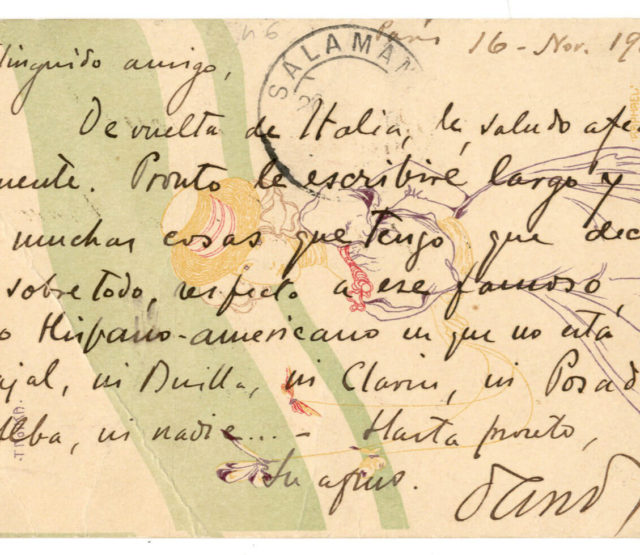 Paris 16-Nov. 19
SALAMAN
tinguido amigo,
De vuelta de Italia, le saludo afe
mente. Pronto le escribiré largo y
muchas cosas que tengo que dec
sobre todo, respecto a ese famoso
o Hispano-americano en que no está
ajal, ni Buylla, ni Clarin, ni Posad
Alba, ni nadie... - Hasta pronto,
Su afmo.